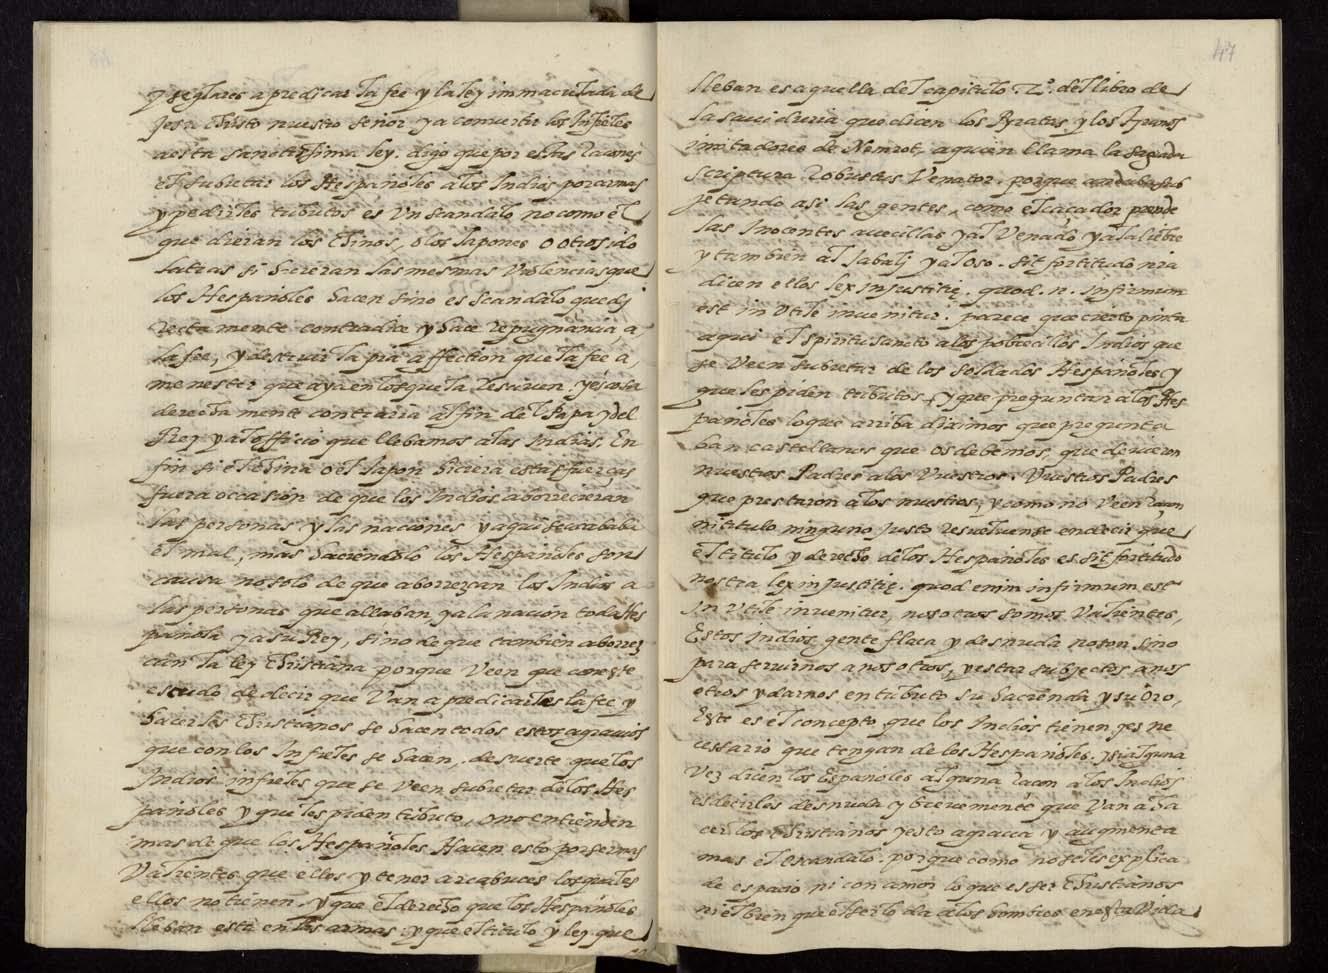 y seglares a predicar la fee y la ley immaculada de
Jesu Christo nuestro señor ya convertir los Infieles
a esta sanctissima ley. digo que por estas raçones
el subietar los Hespañoles a los Indios por armas
y pedirles tributos es Un scandalo no como el
que dieran los Chinos, o los Japones o otros ido
latras si hicieran las mesmas violencias que
los Hespañoles hacen sino es scandalo que di
rectamente contradice y hace repugnancia, a,
la fee, y destruir la pia affection que la fee a,
menester que aya en los que la resciven. yes cosa
derecha mente contraria al fin del Papa y del
Rey y al officio que llebamos a las Indias. En
fin si el China o el Japon hiciera estas fuerças
fuera occasion de que los Indios aborrecieran
sus personas y las naciones y aqui se acababa
el mal, mas haciendolo los Hespañoles son
causa no solo de que aborrezcan los Indios a
sus personas que allaban, ya la nacion toda Hes
pañola ya su Rey, sino de que tambien aborrez
can la ley Christiana porque Veen que con este
escudo de decir que Van a predicarles la fee y
hacerlos Christianos se hacen todos estos agravios
que con los Infieles se hacen, de suerte que los
Indios infieles que se veen subietar de los Hes
pañoles y que les piden tributo, no entienden
mas de que los Hespañoles Hacen esto por ser mas
Valientes que ellos y tener arcabuces los quales
ellos no tienen, y que el derecho que los Hespañoles
lleban esta en las armas, y que el titulo y ley que
47
lleban es aquella del capitulo 2º. del libro de
la sauiduria que dicen los Pyratas y los Tyranos
imitadores de Nemrot, a quien llama la sagrada
scriptura Robustus Venator. porque andaba sub
jetando asi las gentes, como el caçador prende
las Inocentes avecillas yal Venado, ya la liebre
y tambien al Jabali yal oso. sit fortitudo nra
dicen ellos lex Injustitię. quod. n. Infirmum
est inutile invenitur. parece que cierto pinta
aqui el spiritu sancto a los pobrecillos Indios que
se Veen subietar de los soldados Hespañoles y
que les piden tributos, y que preguntan a los Hes
pañoles lo que arriba diximos que pregunta
ban castellanos que os debemos, que debieron
nuestros Padres a los Vuestros. Vuestros Padres
que prestaron a los nuestros, y como no Veen raçon
ni titulo ninguno justo resuelvense en decir que
el titulo y derecho de los Hespañoles es. sit fortitudo
nostra lex injustitię. quod enim infirmum est
inutile invenitur, nosotros somos Valientes,
Estos Indios gente flaca y desnuda no son sino
para servirnos a nosotros, y estar subjectos a nos
otros y darnos en tributo su hacienda y su oro,
Este es el concepto que los Indios tienen yes ne
cessario que tengan de los Hespañoles. y si alguna
Vez dicen los Españoles alguna raçon a los Indios
es decirles desnuda y brevemente que Van a ha
cerlos Christianos yesto agrava y augmenta
mas el escandalo. porque como no se les explica
de espacio ni con amor lo que es ser Christianos
ni el bien que el serlo da a los hombres en esta Vida